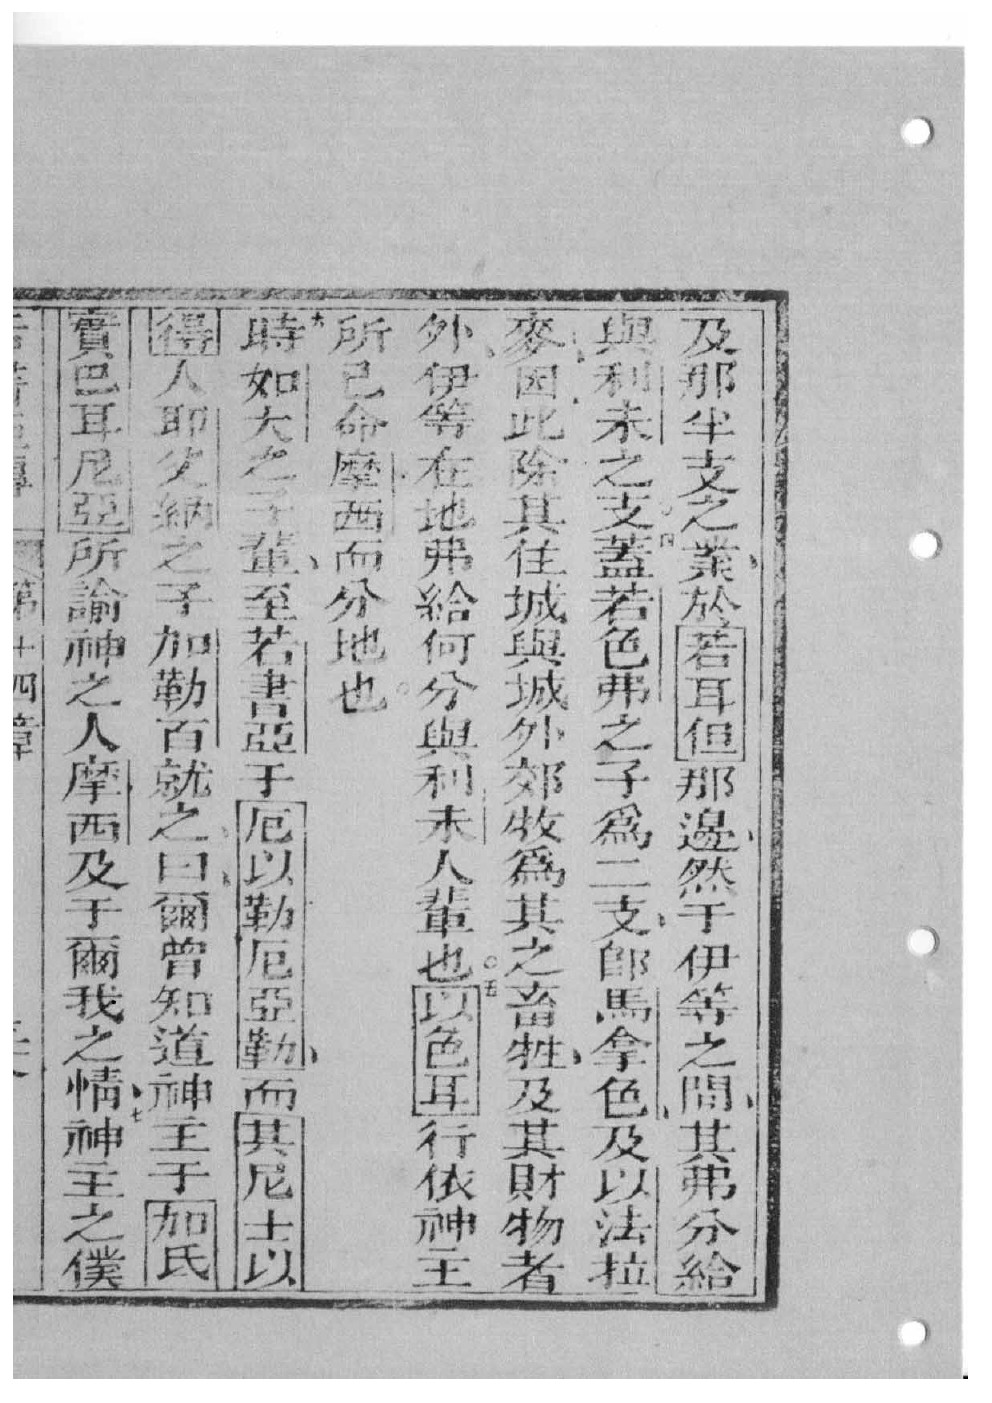 及那半支之業於若耳但那邊然于伊等之間其弗分給
與利未之支四蓋若色弗之子爲二支郎馬拿色及以法拉
麥因此除其住城與城外郊牧爲其之畜牲及其財物者
外伊等在地弗給何分與利未人輩也五以色耳行依神主
所已命摩西而分地也
六時如大之子輩至若書亞于厄以勒厄亞勒而其尼士以
得人耶父納之子加勒百就之曰爾曾知道神主于加氏
實巴耳尼亞所諭神之人摩西及于爾我之情七神主之僕
第十四章